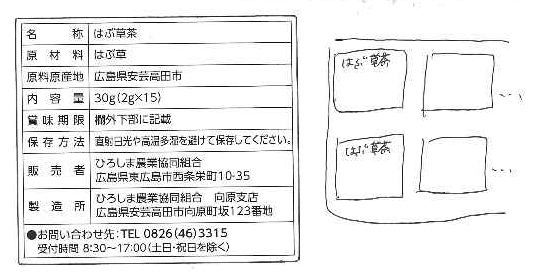 名称 はぶ草茶
原材料 はぶ草
原料原産地 広島県安芸高田市
内容量 30g(2g×15)
賞味期限 欄外下部に記載
保存方法 直射日光や高温多湿を避けて保存してください。
販売者 ひろしま農業協同組合
広島県東広島市西条栄町10-35
製造所 ひろしま農業協同組合 向原支店
広島県安芸高田市向原町坂123番地
●お問い合わせ先:TEL 0826(46)3315
受付時間 8:30~17:00(土日・祝日を除く)
はぶ草茶
...
はぶ草茶
...